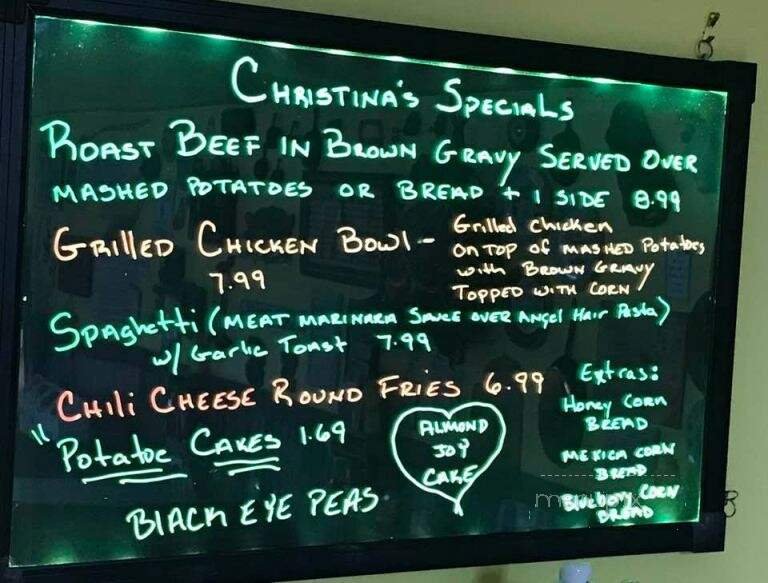 CHRISTINA'S SPECIALS
ROAST BEEF IN BROWN GRAVY SERVED OVER
MASHED POTATOES OR BREAD + 1 SIDE 8.99
GRILLED CHICKEN BOWL -
7.99
Grilled chicken
ON TOP OF MASHED Potatoes
with BROWN GRAVY
TOPPED WITH CORN
Spaghetti (MEAT MARINARA SAUCE OVER ANGEL HAIR Pasta)
w/ Garlic TOAST 7.99
CHILI CHEESE ROUND FRIES 6.99
"Potatoe CAKES 1.69
BLACK EYE PEAS
ALMOND
JOY
CAKE
Extras:
Honey CORN
BREAD
MEXICA CORN
BREAD
CORN
BREAD